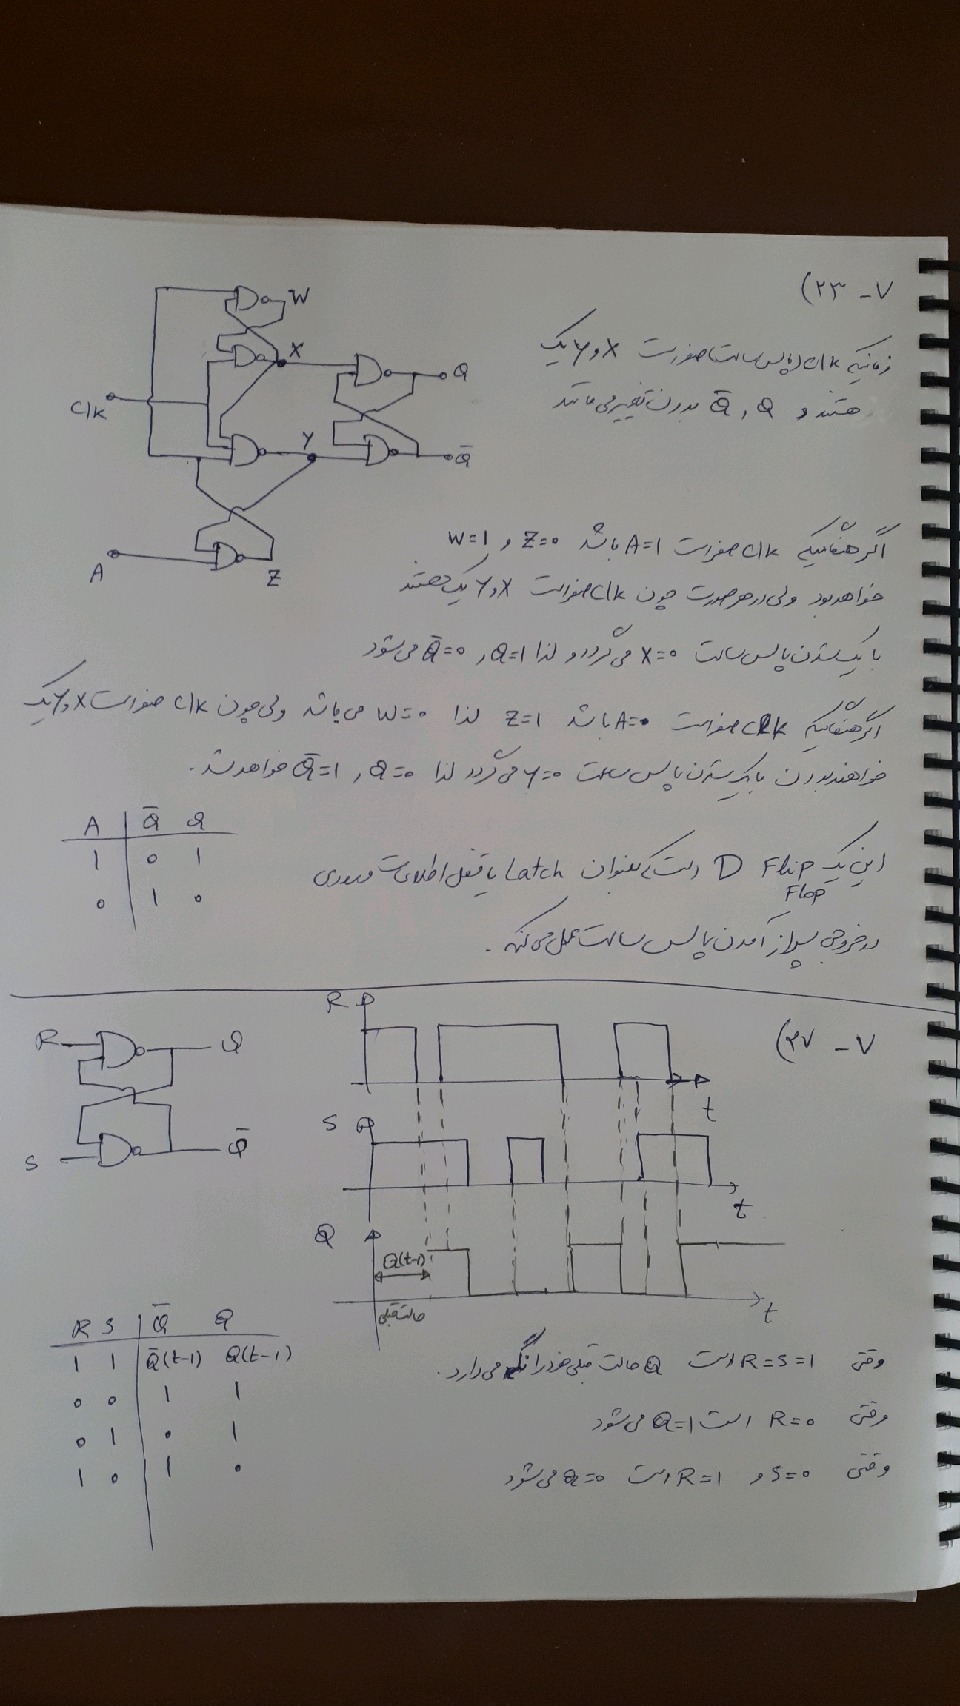 ۷ - ۲۳)
زمانیکه clk یا پالس ساعت صفر است X و Y یک
هستند و Q , Q̄ بدون تغییر می مانند
W
X
Q
Clk
Y
Q̄
A
Z
اگر هنگامیکه clk صفر است A=1 باشد Z=0 و W=1
خواهد بود ولی در هر صورت چون clk صفر است X و Y یک هستند
با یک شدن پالس ساعت X=0 می گردد و لذا Q=1 , Q̄=0 می شود
اگر هنگامیکه clk صفر است A=0 باشد Z=1 لذا W=0 می باشد ولی چون clk صفر است X و Y یک
خواهند بود با یک شدن پالس ساعت Y=0 می گردد لذا Q=0 , Q̄=1 خواهد شد.
A Q̄ Q
1 0 1
0 1 0
این یک D Flip Flop است که بعنوان Latch یا قفل اطلاعات ورودی
در خروجی پس از آمدن پالس ساعت عمل می کند.
۷ - ۲۷)
R
Q
S
Q̄
R
t
S
t
Q
Q(t-1)
حالت قبلی
t
R S Q̄ Q
1 1 Q̄(t-1) Q(t-1)
0 0 1 1
0 1 0 1
1 0 1 0
وقتی R=S=1 است Q حالت قبلی خود را نگه می دارد.
وقتی R=0 است Q=1 می شود
وقتی S=0 و R=1 است Q=0 می شود